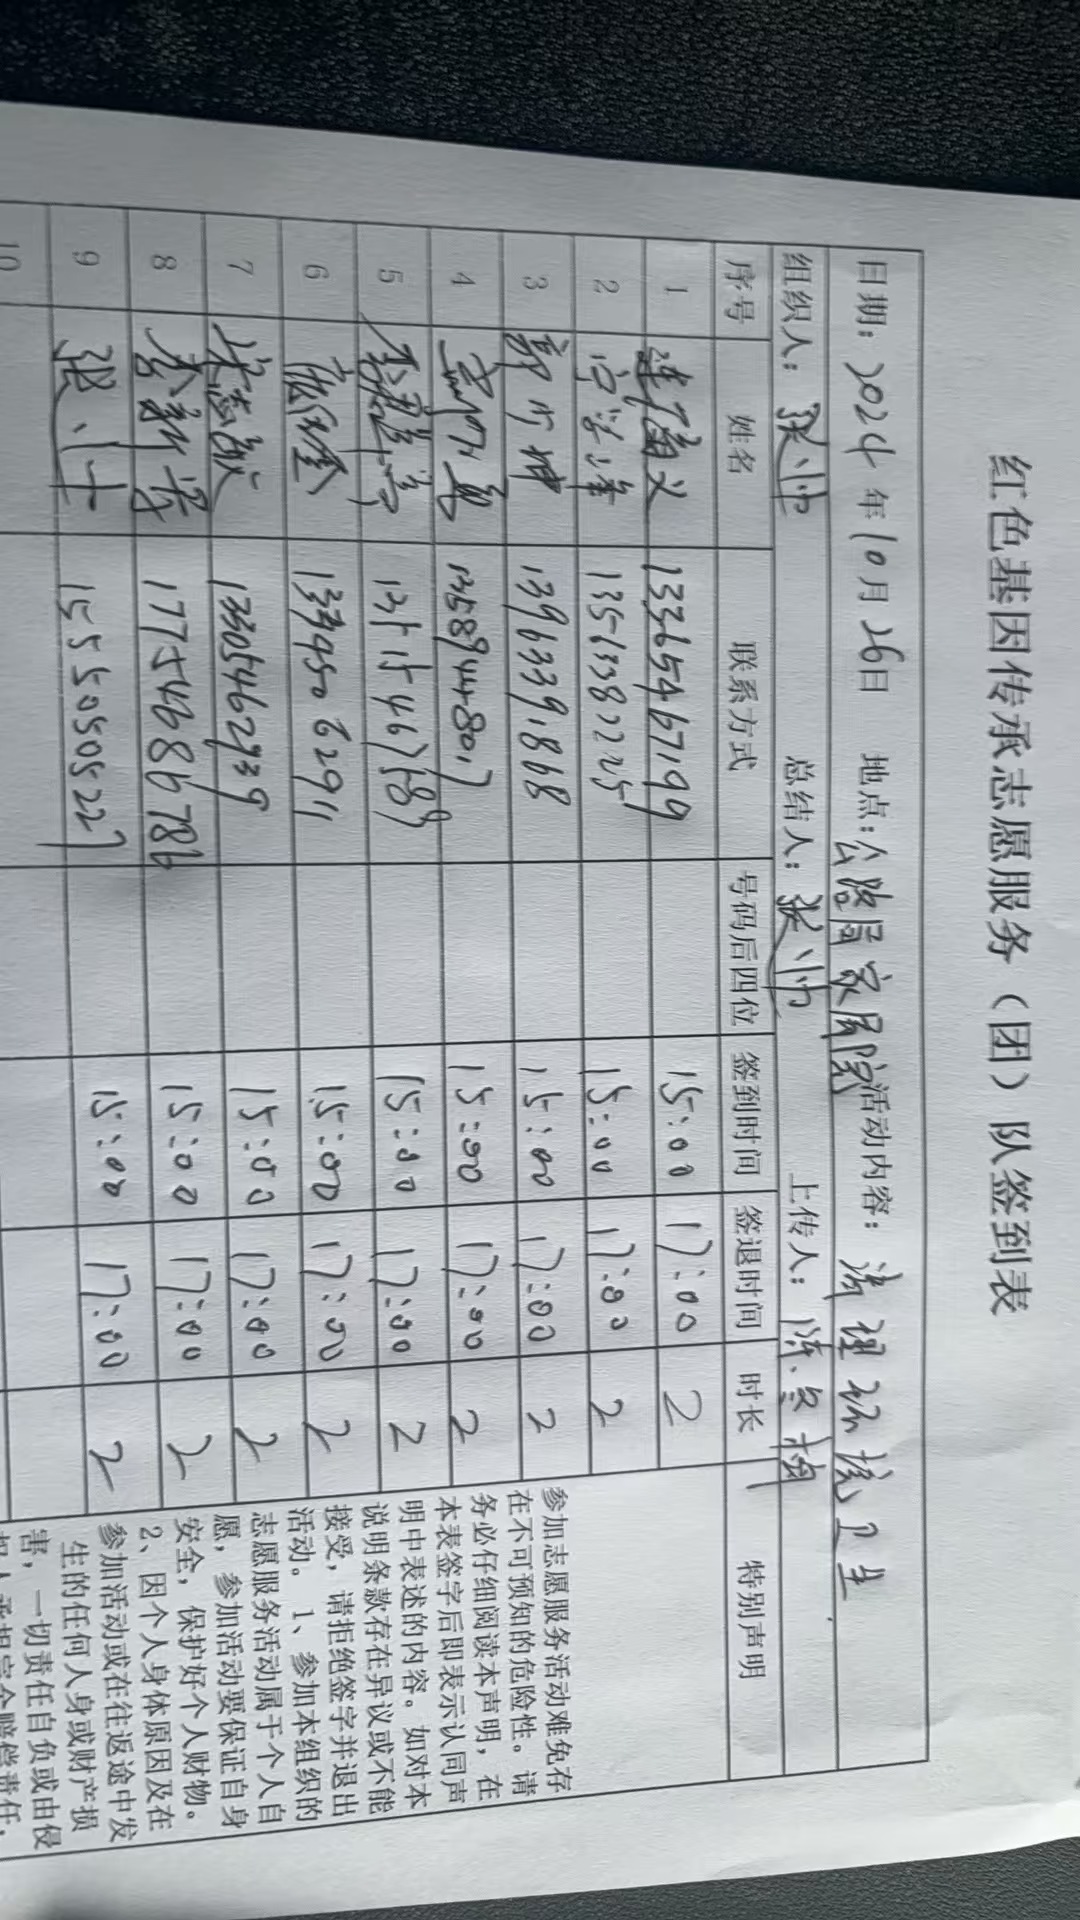 红色基因传承志愿服务（团）队签到表
日期：2024年10月26日 地点：公路局家属院 活动内容：清理环境卫生
组织人：张帅 总结人：张帅 上传人：陈冬梅
序号 姓名 联系方式 号码后四位 签到时间 签退时间 时长 特别声明
1 13365467199 15:00 17:00 2
2 13561338225 15:00 17:00 2
3 13963391868 15:00 17:00 2
4 13589448017 15:00 17:00 2
5 15:00 17:00 2
6 133945062911 15:00 17:00 2
7 宋志敏 13305462939 15:00 17:00 2
8 李新亮 17754686786 15:00 17:00 2
9 张小士 15550505227 15:00 17:00 2
10
参加志愿服务活动难免存
在不可预知的危险性。请
务必仔细阅读本声明，在
本表签字后即表示认同声
明中表述的内容。如对本
说明条款存在异议或不能
接受，请拒绝签字并退出
活动。 1、参加本组织的
志愿服务活动属于个人自
愿，参加活动要保证自身
安全，保护好个人财物。
2、因个人身体原因及在
参加活动或在往返途中发
生的任何人身或财产损
害，一切责任自负或由侵
权人承担完全赔偿责任，